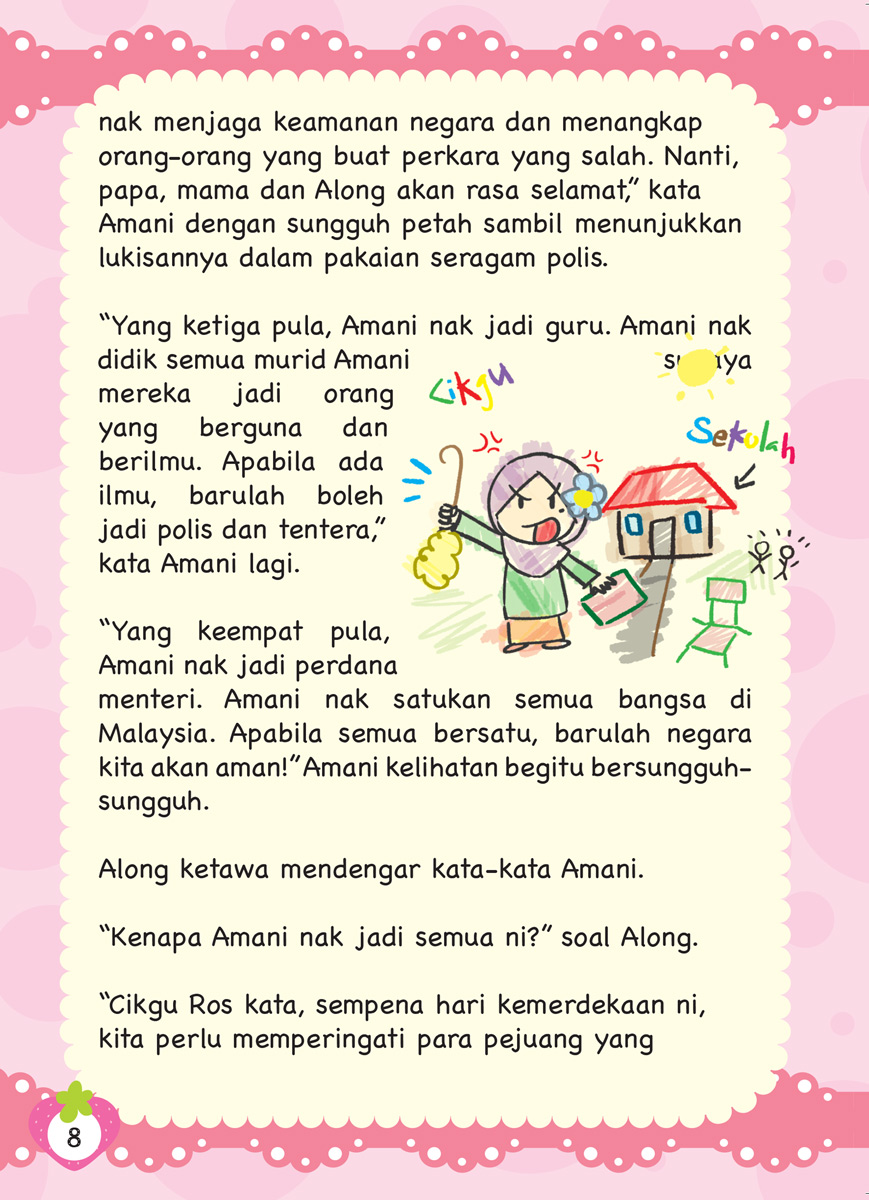 nak menjaga keamanan negara dan menangkap
orang-orang yang buat perkara yang salah. Nanti,
papa, mama dan Along akan rasa selamat,” kata
Amani dengan sungguh petah sambil menunjukkan
lukisannya dalam pakaian seragam polis.
“Yang ketiga pula, Amani nak jadi guru. Amani nak
didik semua murid Amani
mereka jadi orang
yang berguna dan
berilmu. Apabila ada
ilmu, barulah boleh
jadi polis dan tentera,”
kata Amani lagi.
Cikgu
Sekolah
“Yang keempat pula,
Amani nak jadi perdana
menteri. Amani nak satukan semua bangsa di
Malaysia. Apabila semua bersatu, barulah negara
kita akan aman!” Amani kelihatan begitu bersungguh-
sungguh.
Along ketawa mendengar kata-kata Amani.
“Kenapa Amani nak jadi semua ni?” soal Along.
“Cikgu Ros kata, sempena hari kemerdekaan ni,
kita perlu memperingati para pejuang yang
8